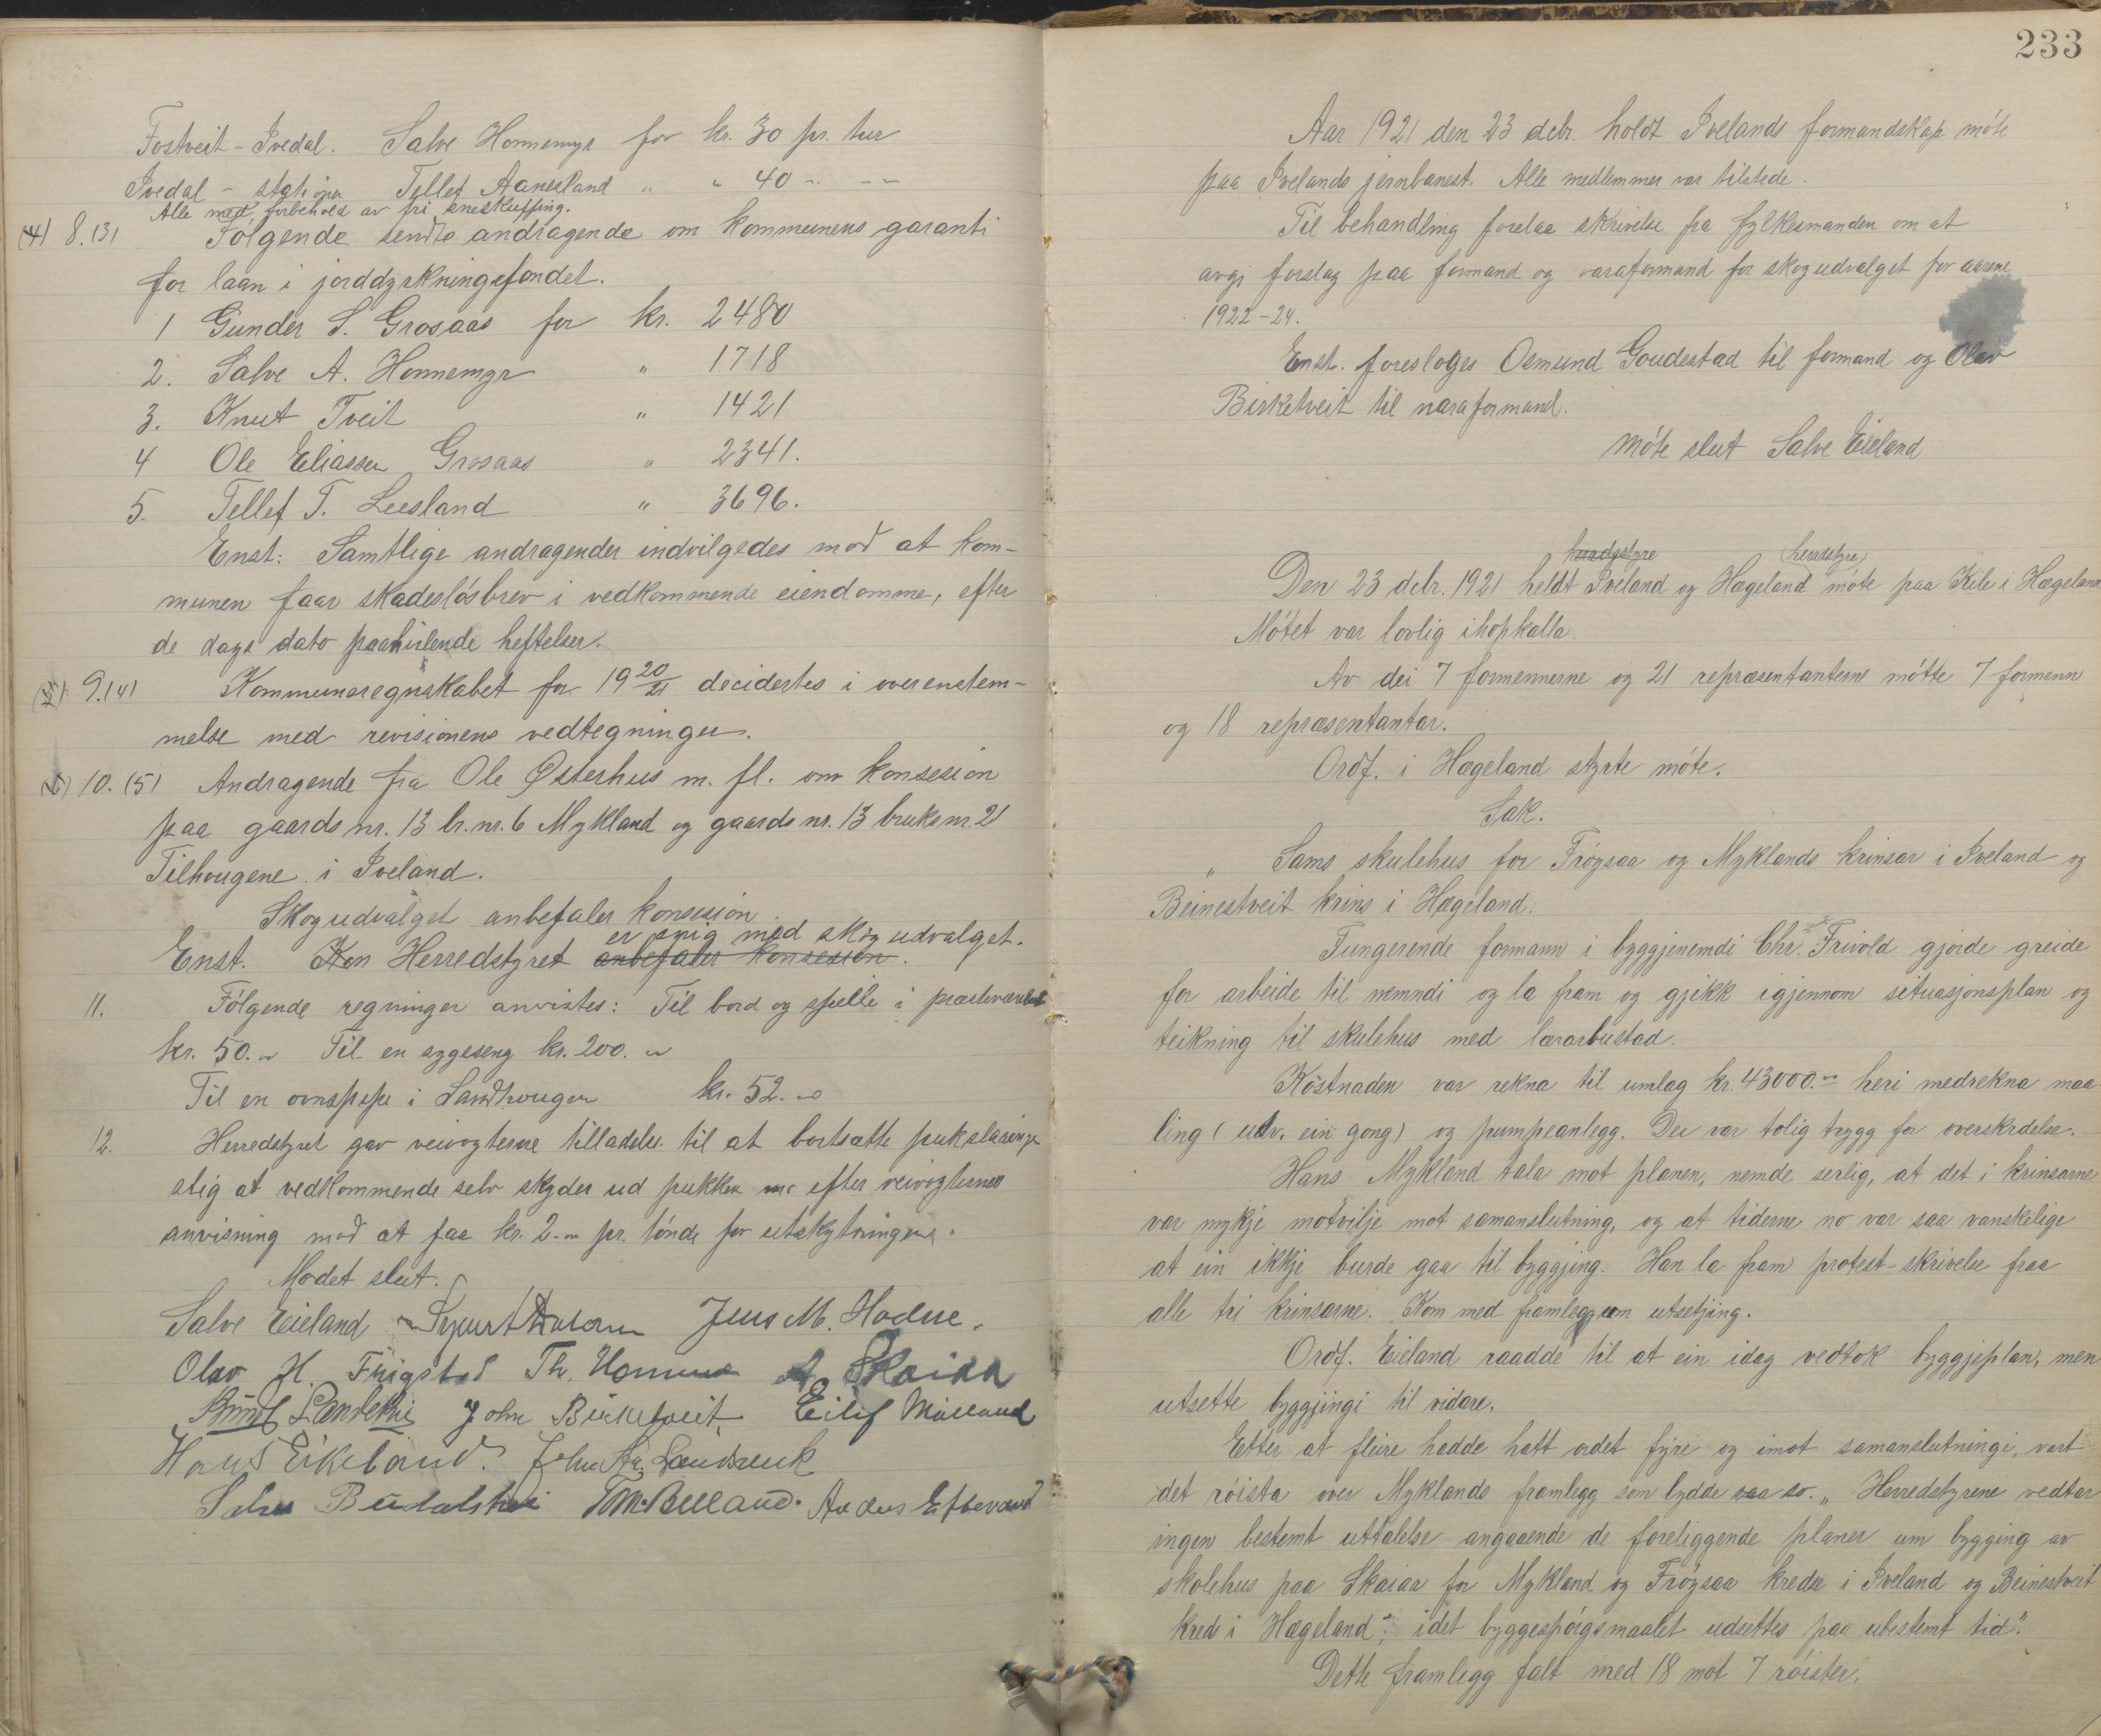 Fostveit - Ivedal. Salve Honnemyr for kr. 30 pr. tur
Ivedal - stationen Tellef Aanesland " " 40 - - -
Alle med forbehold av fri sneskuffing.
(4) 8.(3) Følgende sendte andragende om kommunens garanti
for laan i jorddyrkningsfondet.
1 Gunder S. Grosaas for kr. 2480
2. Salve A. Honnemyr " 1718
3. Knut Tveit " 1421
4 Ole Eliassen Grosaas " 2341.
5. Tellef T. Leesland " 3696.
Enst: Samtlige andragender indvilgedes mod at kom-
munen faar skadesløsbrev i vedkommende eiendomme, efter
de dags dato paahvilende heftelser.
(5) 9.(4) Kommuneregnskabet for 19 20/21 decidertes i overenstem-
melse med revisionens vedtegninger.
(6) 10. (5) Andragende fra Ole Østerhus m. fl. om konsesion
paa gaards nr. 13 br. nr. 6 Mykland og gaards nr. 13 bruks nr. 21
Tilhougene i Iveland.
Skogudvalget anbefaler konsesion.
er enig med skogudvalget.
Enst. Kon Herredstyret anbefaler konsesion.
11. Følgende regninger anvistes: Til bord og speile i presteværelset
kr. 50.- Til en sygeseng kr. 200.-
Til en ovnspipe i Landhougen kr. 52.-
12. Herredstyret gav veivogterne tilladelse til at bortsætte pukslaainger
slig at vedkommende selv skyder ud pukken efter veivogternes
anvisning mod at faa kr. 2.- pr. tønde for utskytningene.
Mødet slut.
Salve Eieland Jens M. Hodne.
Olav H. Frigstad Th. Homme A Skaiaa
John Birketveit Eilif Mølland
Hans Eikeland.
T.M. Belland.
233
Aar 1921 den 23 debr. holdt Ivelands formandskap møte
paa Ivelands jernbanest. Alle medlemmer var tilstede.
Til behandling forelaa skrivelse fra fylkesmanden om at
avgi forslag paa formand og varaformand for skogudvalget for aarene
1922-24.
Enst. foresloges Osmund Goudestad til formand og Olav
Birketveit til varaformand.
Møte slut Salve Eieland
heradstyre heradstyre
Den 23 debr. 1921 heldt Iveland og Hægeland møte paa Kile i Hægeland
Møtet var lovlig ihopkalla.
Av dei 7 formennerne og 21 repræsentanterne møtte 7 formenn
og 18 repræsentantar.
Ordf. i Hægeland styrte møte.
Sak.
" Sams skulehus for Frøysaa og Myklands krinsar i Iveland og
Beinestveit krins i Hægeland.
Fungerende formann i byggjenemdi Chr. Frivold gjorde greide
for arbeide til nemndi og la fram og gjikk igjennom situasjonsplan og
teikning til skulehus med lærarbustad.
Kostnaden var rekna til umlag kr. 43000.- heri medrekna maa-
ling (utv. ein gong) og pumpeanlegg. Dei var tolig trygg for overskrdelse.
Hans Mykland tala mot planen, nemde serlig, at det i krinsarne
var mykje motvilje mot samanslutning, og at tiderne no var saa vanskelige
at ein ikkje burde gaa til byggjing. Han la fram protest-skrivelse fraa
alle tri krinsarne. Kom med framlegg um utsetjing.
Ordf. Eieland raadde til at ein idag vedtok byggjeplan, men
utsette byggjingi til vidare.
Etter at fleire hadde hatt ordet fyre og imot samanslutningi, vart
det røista over Myklands framlegg som lydde saa so. „ Herredstyrene vedtar
ingen bestemt uttalelse angaaende de foreliggende planer um bygging av
skolehus paa Skaiaa for Mykland og Frøysaa kredse i Iveland og Beinestveit
kreds i Hægeland; idet byggespørgsmaalet udsettes paa ubestemt tid."
Dette framlegg falt med 18 mot 7 røister.